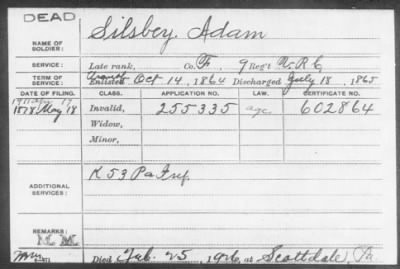 DEAD
NAME OF SOLDIER: Silsbey, Adam
SERVICE: Late rank, Co. F, 9 Reg't V.R.C.
TERM OF SERVICE: Enlisted Oct 14, 1864 Discharged July 18, 1865
DATE OF FILING. CLASS. APPLICATION NO. LAW. CERTIFICATE NO.
1878 May 18 Invalid, 255335 age 602864
Widow,
Minor,
ADDITIONAL SERVICES: K 53 Pa Inf.
REMARKS:
Died Feb. 25, 1926, at Scottdale, Pa.